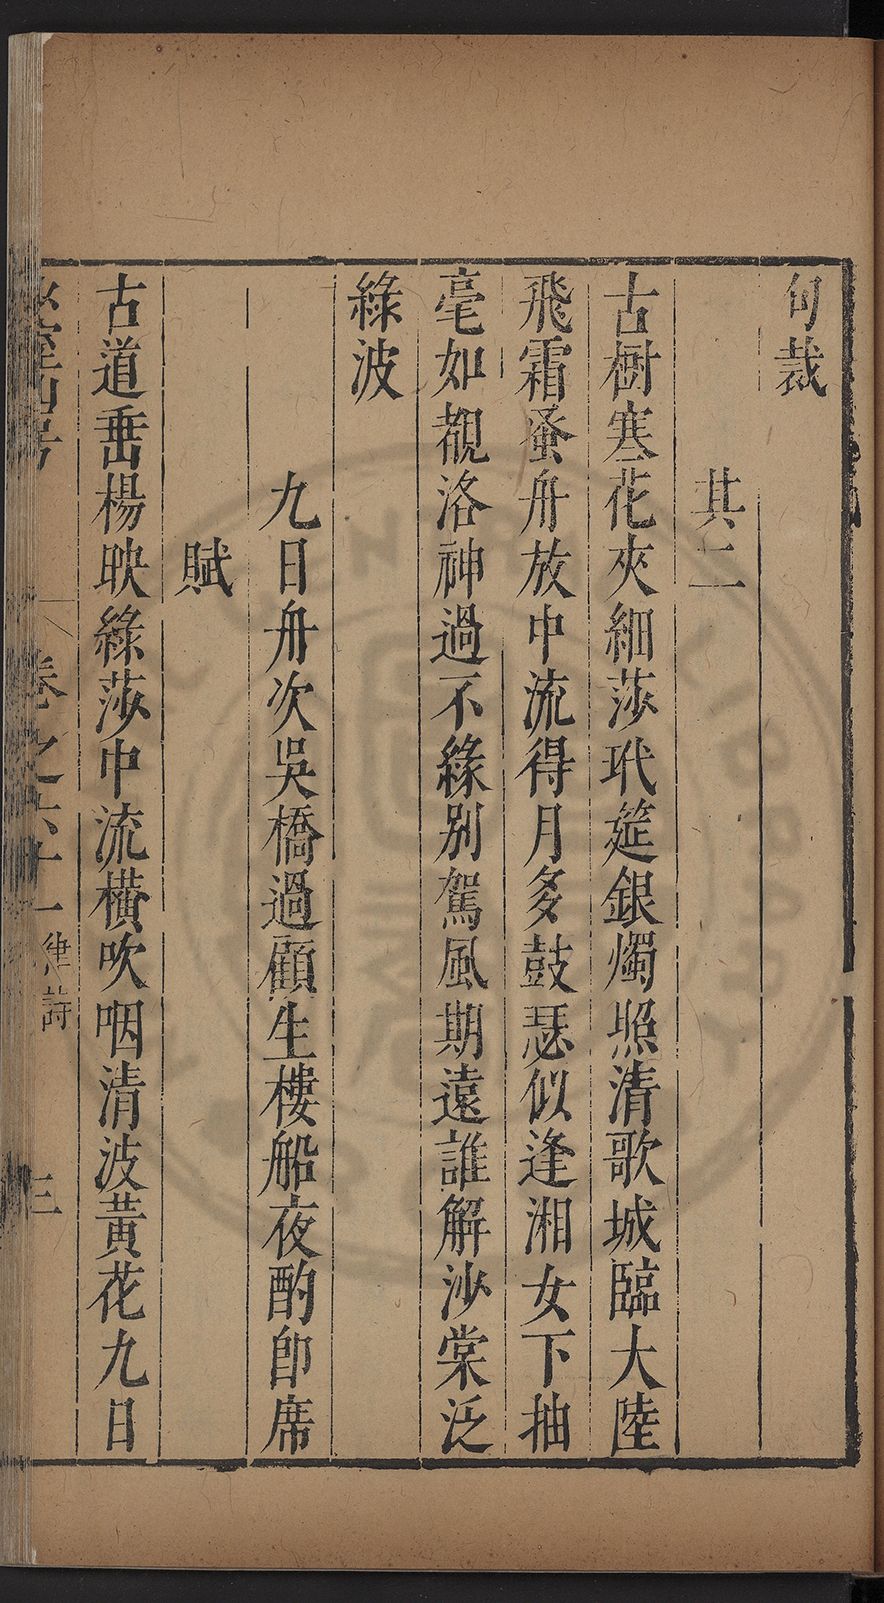 句裁
其二
古樹寒花夾細莎玳筵銀燭照清歌城臨大陸
飛霜蚤舟放中流得月多鼓瑟似逢湘女下抽
毫如覩洛神過不緣別駕風期遠誰解沙棠泛
綠波
九日舟次吳橋過顧生樓船夜酌卽席
賦
古道垂楊映綠莎中流橫吹咽清波黃花九日
卷之六十一 律詩 三